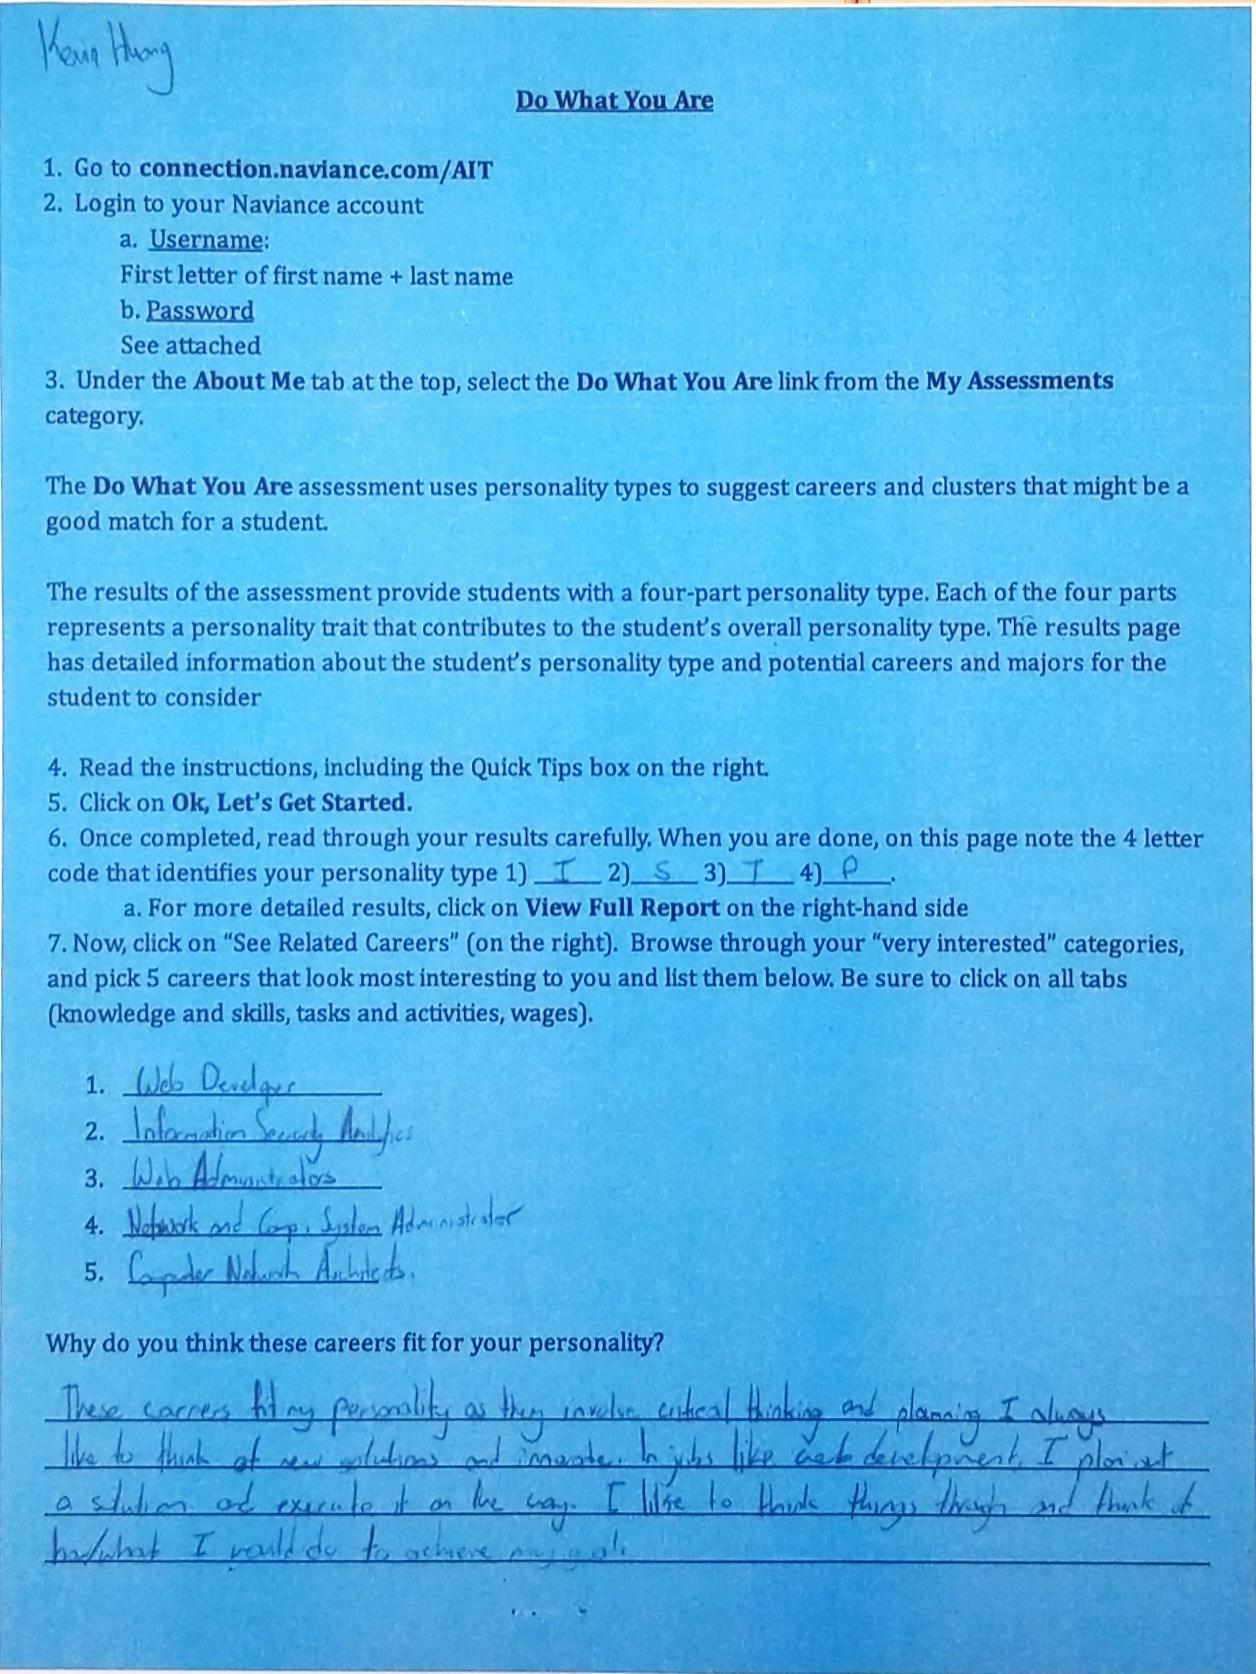 Kevin Huang
Do What You Are
1. Go to connection.naviance.com/AIT
2. Login to your Naviance account
a. Username:
First letter of first name + last name
b. Password
See attached
3. Under the About Me tab at the top, select the Do What You Are link from the My Assessments
category.
The Do What You Are assessment uses personality types to suggest careers and clusters that might be a
good match for a student.
The results of the assessment provide students with a four-part personality type. Each of the four parts
represents a personality trait that contributes to the student's overall personality type. The results page
has detailed information about the student's personality type and potential careers and majors for the
student to consider
4. Read the instructions, including the Quick Tips box on the right.
5. Click on Ok, Let's Get Started.
6. Once completed, read through your results carefully. When you are done, on this page note the 4 letter
code that identifies your personality type 1) I 2) S 3) T 4) P.
a. For more detailed results, click on View Full Report on the right-hand side
7. Now, click on "See Related Careers" (on the right). Browse through your "very interested" categories,
and pick 5 careers that look most interesting to you and list them below. Be sure to click on all tabs
(knowledge and skills, tasks and activities, wages).
1. Web Developer
2. Information Security
3. Web Administrators
4. Network and Comp. System Administrator
5. Computer Network Architects.
Why do you think these careers fit for your personality?
These carrers fit my personality as they involve critical thinking and planning I always
like to think of new solutions and innovate. In jobs like web development, I plan out
a solution and execute it on the way. I like to think things through and think of
how/what I would do to achieve my goal.